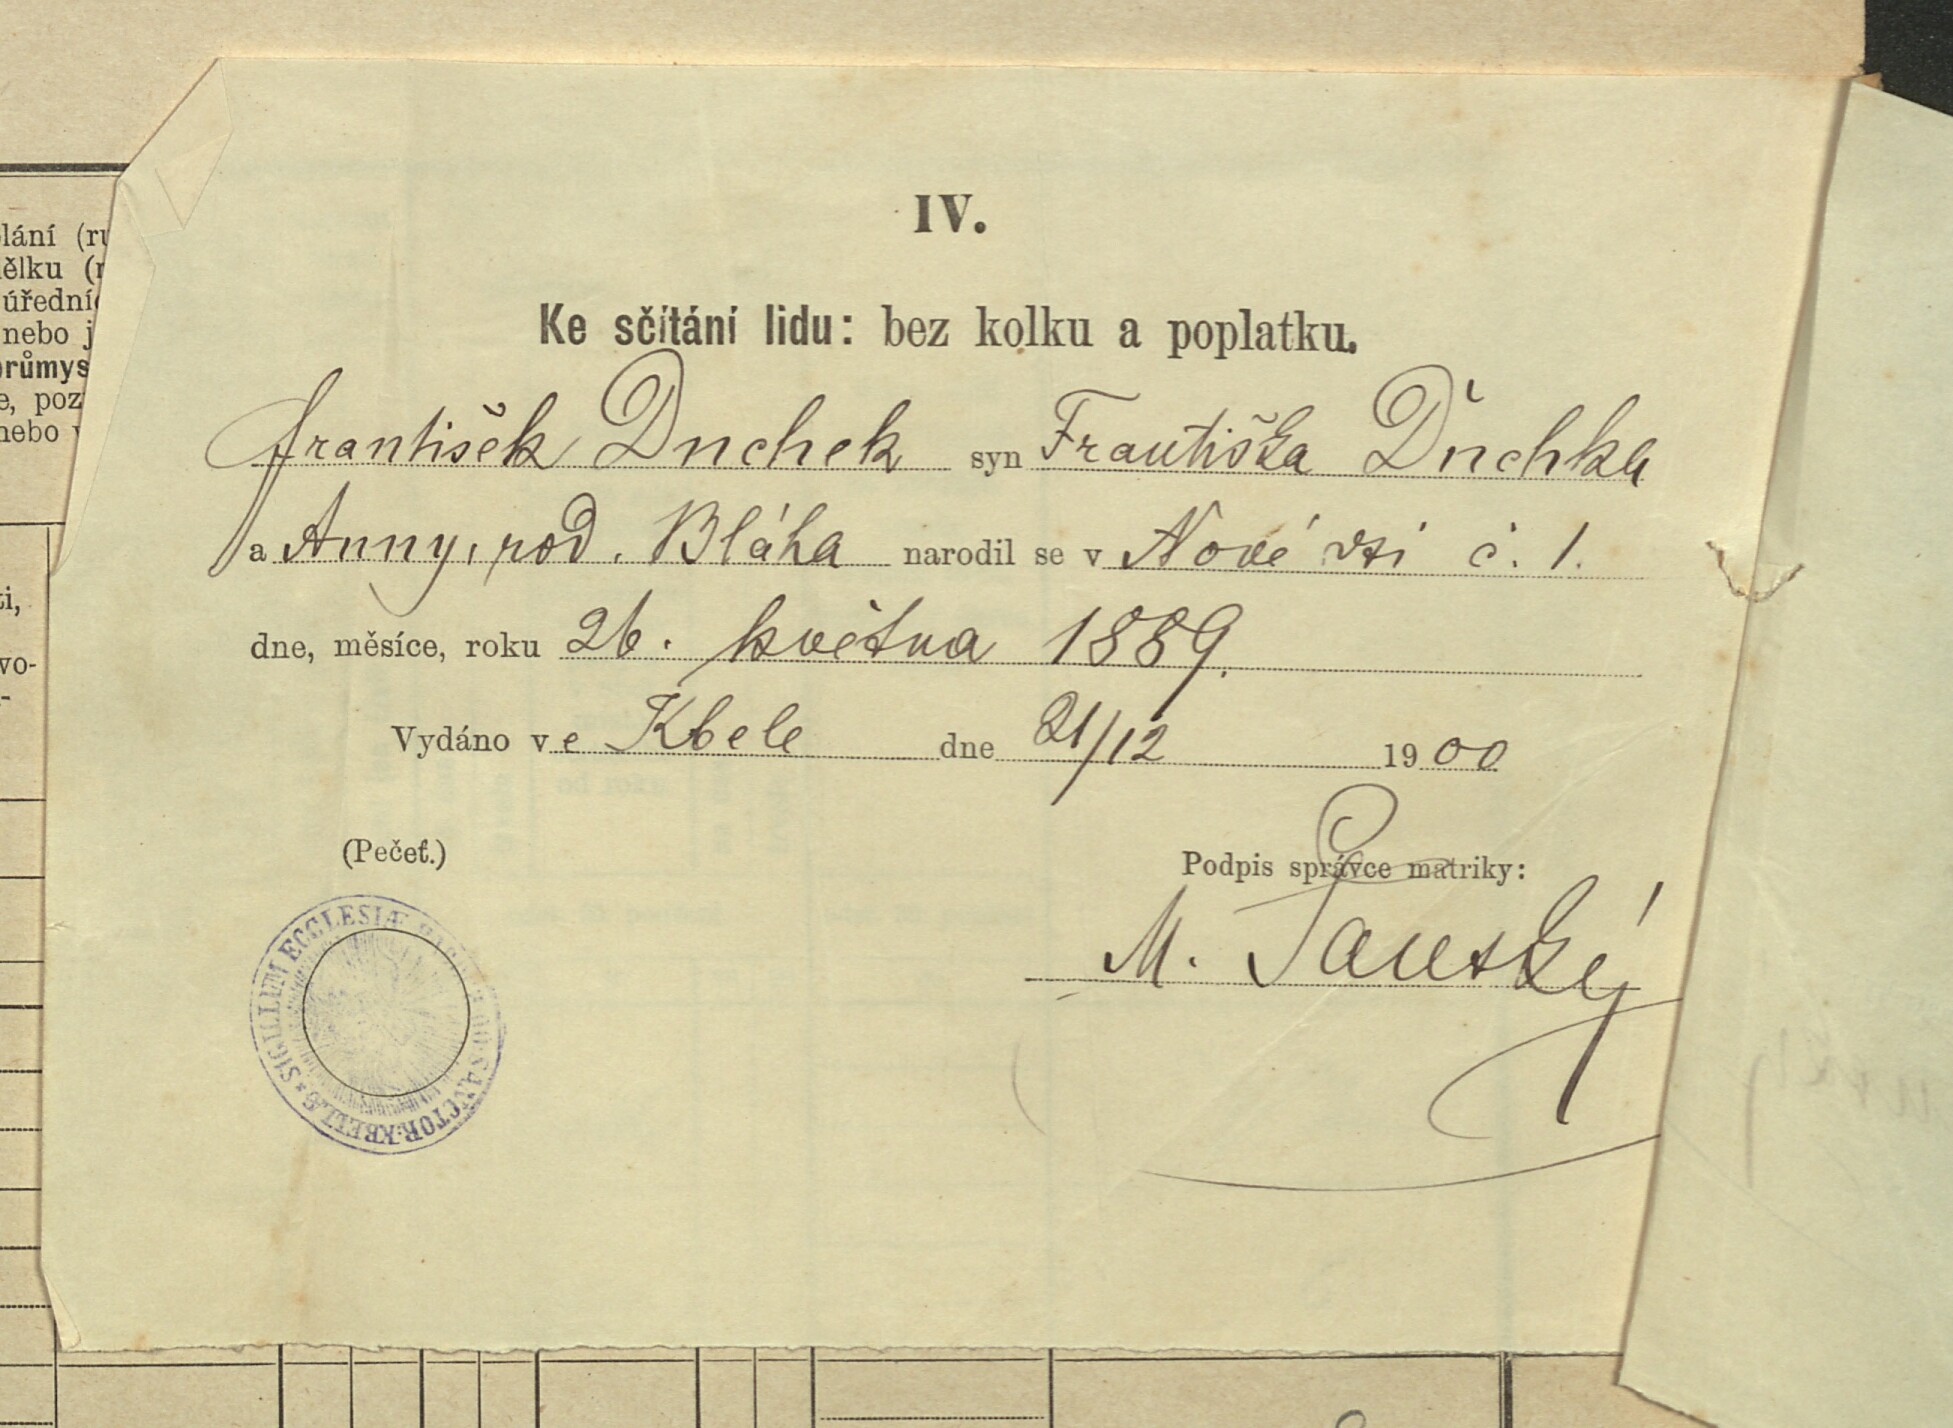 IV.
Ke sčítání lidu: bez kolku a poplatku.
František Duchek syn Františka Duchka
a Anny, rod. Bláha narodil se v Nové vsi č. 1.
dne, měsíce, roku 26. května 1889.
Vydáno ve Kbele dne 21/12 1900
(Pečeť.)
Podpis správce matriky:
M.
SIGILLUM ECCLESIÆ SANCTOR. KBELLÆ
lání (ru
ělku (r
úřednic
nebo j
průmys
e, poz
nebo v
ti,
vo-